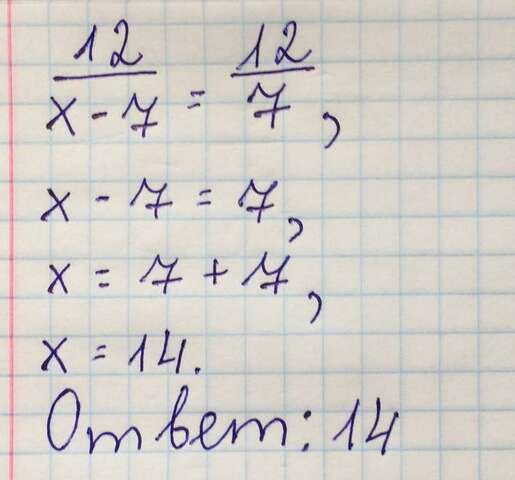 12/(x - 7) = 12/7,
x - 7 = 7,
x = 7 + 7,
x = 14.
Ответ: 14